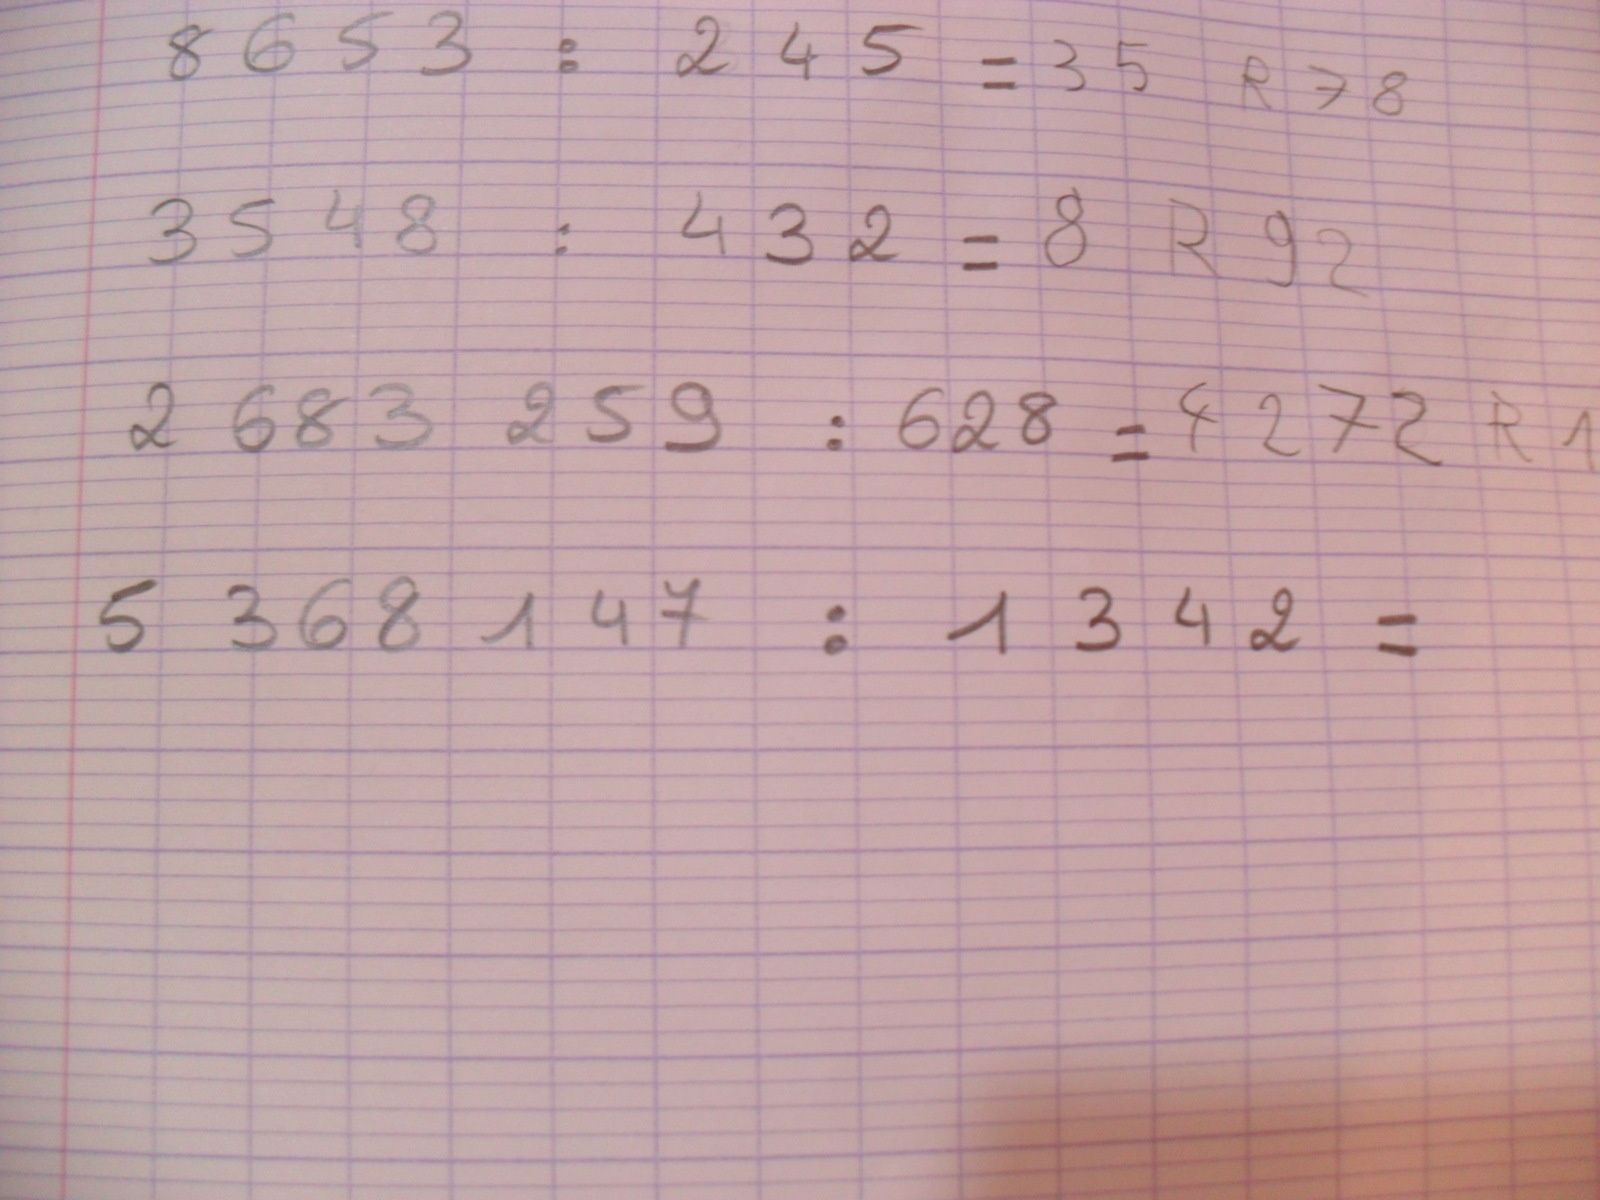 8653 : 245 = 35 R 78
3548 : 432 = 8 R 92
2 683 259 : 628 = 4272 R 1
5 368 147 : 1342 =